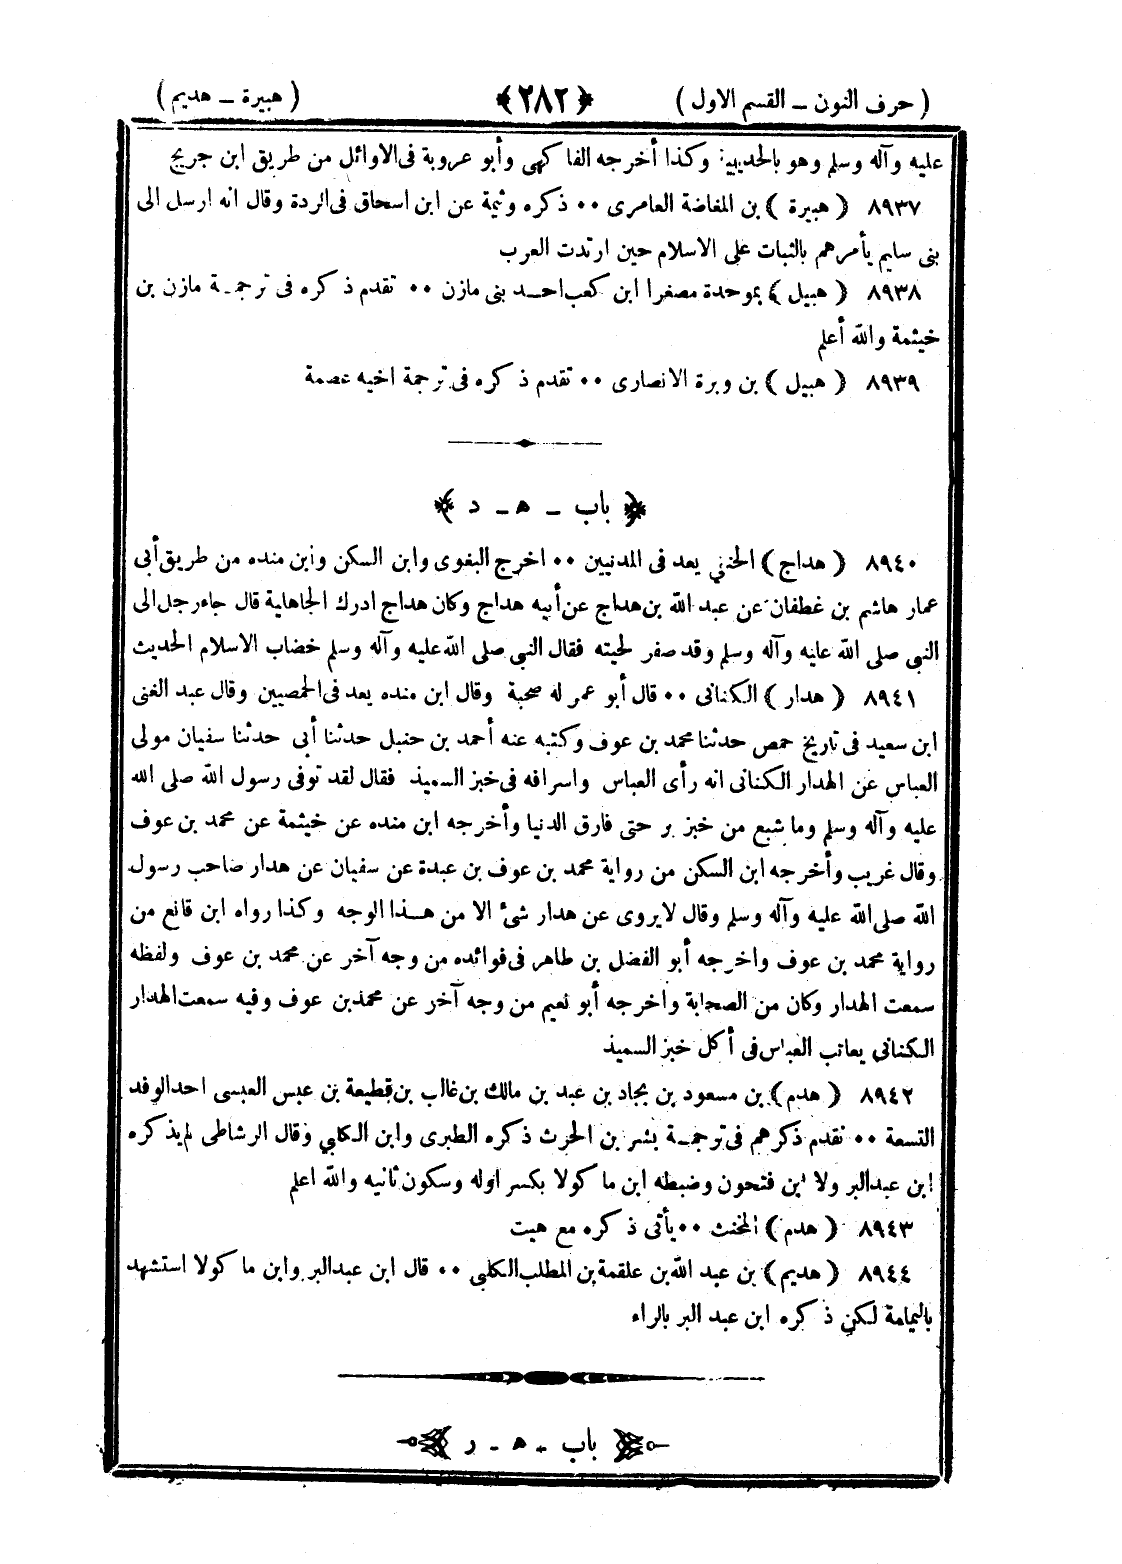 ( حرف النون ــ القسم الاول ) ﴿ ٢٨٢ ﴾ ( هبيرة ــ هديم )
عليه وآله وسلم وهو بالحديبية وكذا أخرجه الفاكهى وأبو عروبة فى الاوائل من طريق ابن جريج
٨٩٣٧ ( هبيرة ) بن المفاضة العامرى ٠٠ ذكره وثيمة عن ابن اسحاق فى الردة وقال انه ارسل الى
بنى سليم يأمرهم بالثبات على الاسلام حين ارتدت العرب
٨٩٣٨ ( هبيل ) بموحدة مصغرا ابن كعب احد بنى مازن ٠٠ تقدم ذكره فى ترجمة مازن بن
خيثمة والله أعلم
٨٩٣٩ ( هبيل ) بن وبرة الانصارى ٠٠ تقدم ذكره فى ترجمة اخيه عصمة
﴿ باب ـ هـ ـ د ﴾
٨٩٤٠ ( هداج ) الحنفي يعد فى المدنيين ٠٠ اخرج البغوى وابن السكن وابن منده من طريق أبى
عمار هاشم بن غطفان عن عبد الله بن هداج عن أبيه هداج وكان هداج ادرك الجاهلية قال جاء رجل الى
النبي صلى الله عليه وآله وسلم وقد صفر لحيته فقال النبي صلى الله عليه وآله وسلم خضاب الاسلام الحديث
٨٩٤١ ( هدار ) الكنانى ٠٠ قال أبو عمر له صحبة وقال ابن منده يعد فى الحمصيين وقال عبد الغنى
ابن سعيد فى تاريخ حمص حدثنا محمد بن عوف وكتبه عنه أحمد بن حنبل حدثنا أبى حدثنا سفيان مولى
العباس عن الهدار الكنانى انه رأى العباس واسرافه فى خبز السميذ فقال لقد توفى رسول الله صلى الله
عليه وآله وسلم وما شبع من خبز بر حتى فارق الدنيا وأخرجه ابن منده عن خيثمة عن محمد بن عوف
وقال غريب وأخرجه ابن السكن من رواية محمد بن عوف بن عبدة عن سفيان عن هدار صاحب رسول
الله صلى الله عليه وآله وسلم وقال لايروى عن هدار شئ الا من هذا الوجه وكذا رواه ابن قانع من
رواية محمد بن عوف واخرجه أبو الفضل بن طاهر فى فوائده من وجه آخر عن محمد بن عوف ولفظه
سمعت الهدار وكان من الصحابة وأخرجه أبو نعيم من وجه آخر عن محمد بن عوف وفيه سمعت الهدار
الكنانى يعاتب العباس فى أكل خبز السميذ
٨٩٤٢ ( هدم ) بن مسعود بن بجاد بن عبد بن مالك بن غالب بن قطيعة بن عبس العبسى احد الوفد
التسعة ٠٠ تقدم ذكرهم فى ترجمة بشر بن الحرث ذكره الطبرى وابن الكلبي وقال الرشاطى لم يذكره
ابن عبد البر ولا ابن فتحون وضبطه ابن ماكولا بكسر اوله وسكون ثانيه والله اعلم
٨٩٤٣ ( هدم ) المخنث ٠٠ يأتى ذكره مع هيت
٨٩٤٤ ( هديم ) بن عبد الله بن علقمة بن المطلب الكلبي ٠٠ قال ابن عبد البر وابن ماكولا استشهد
باليمامة لكن ذكره ابن عبد البر بالراء
باب ـ هـ ـ ر